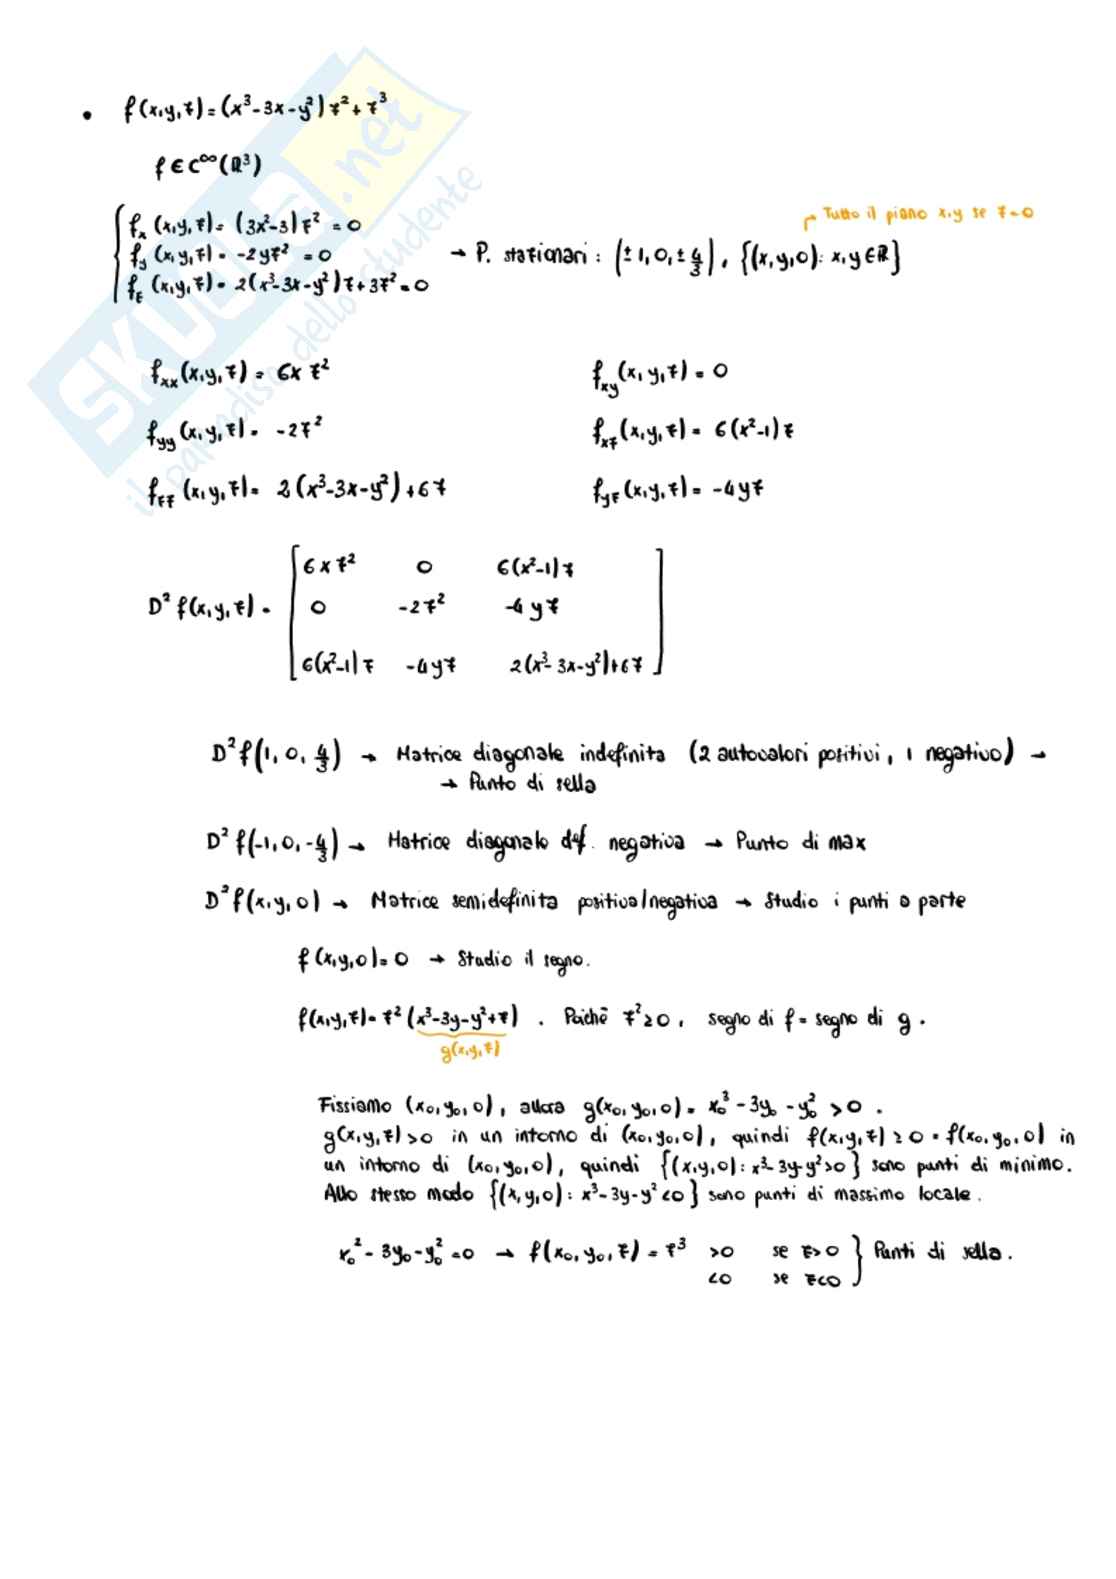 • f(x,y,z) = (x³-3x-y²) z² + z³
f ∈ C^∞(ℝ³)
{ f_x (x,y,z) = (3x²-3) z² = 0
f_y (x,y,z) = -2yz² = 0
f_z (x,y,z) = 2(x³-3x-y²)z + 3z² = 0
→ P. stazionari : (±1, 0, ±4/3), {(x,y,0): x,y ∈ ℝ}
→ Tutto il piano x,y se z=0
f_xx (x,y,z) = 6x z²
f_xy (x,y,z) = 0
f_yy (x,y,z) = -2z²
f_xz (x,y,z) = 6(x²-1)z
f_zz (x,y,z) = 2(x³-3x-y²)+6z
f_yz (x,y,z) = -4yz
D² f(x,y,z) =
[ 6xz² 0 6(x²-1)z
0 -2z² -4yz
6(x²-1)z -4yz 2(x³-3x-y²)+6z ]
D² f(1, 0, 4/3) → Matrice diagonale indefinita (2 autovalori positivi, 1 negativo) →
→ Punto di sella
D² f(-1,0,-4/3) → Matrice diagonale def. negativa → Punto di max
D² f(x,y,0) → Matrice semidefinita positiva/negativa → Studio i punti a parte
f(x,y,0)=0 → Studio il segno.
f(x,y,z) = z² (x³-3y-y²+z) . Poichè z²≥0, segno di f = segno di g.
g(x,y,z)
Fissiamo (x₀,y₀,0), allora g(x₀,y₀,0) = x₀³-3y₀-y₀² >0.
g(x,y,z)>0 in un intorno di (x₀,y₀,0), quindi f(x,y,z) ≥ 0 = f(x₀,y₀,0) in
un intorno di (x₀,y₀,0), quindi {(x,y,0): x³-3y-y²>0} sono punti di minimo.
Allo stesso modo {(x,y,0): x³-3y-y²<0} sono punti di massimo locale.
x₀²-3y₀-y₀²=0 → f(x₀,y₀,z) = z³ >0 se z>0 } Punti di sella.
<0 se z<0
SKUOLA.net
il paradiso dello studente